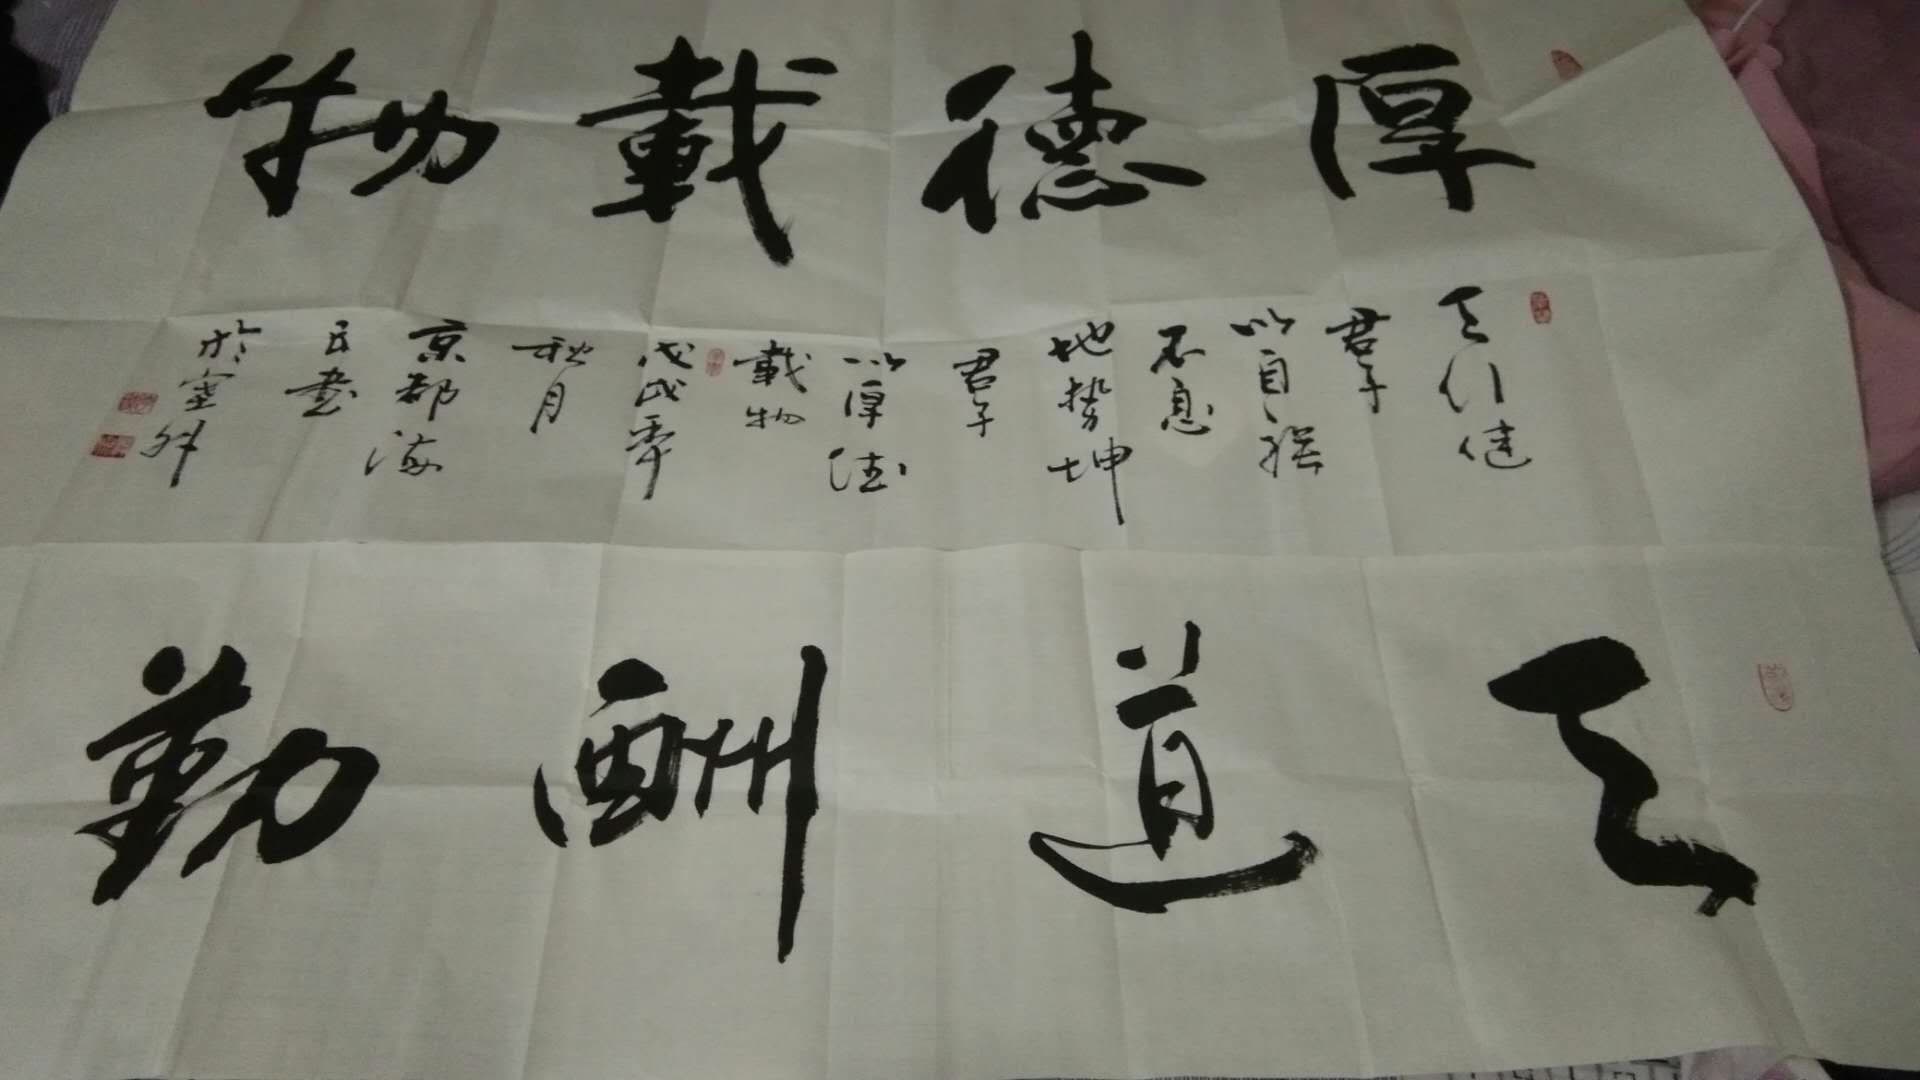 厚德載物
天行健
君子
以自强
不息
地势坤
君子
以厚德
載物
戊戌年
秋月
京都海
民書
於室外
天道酬勤